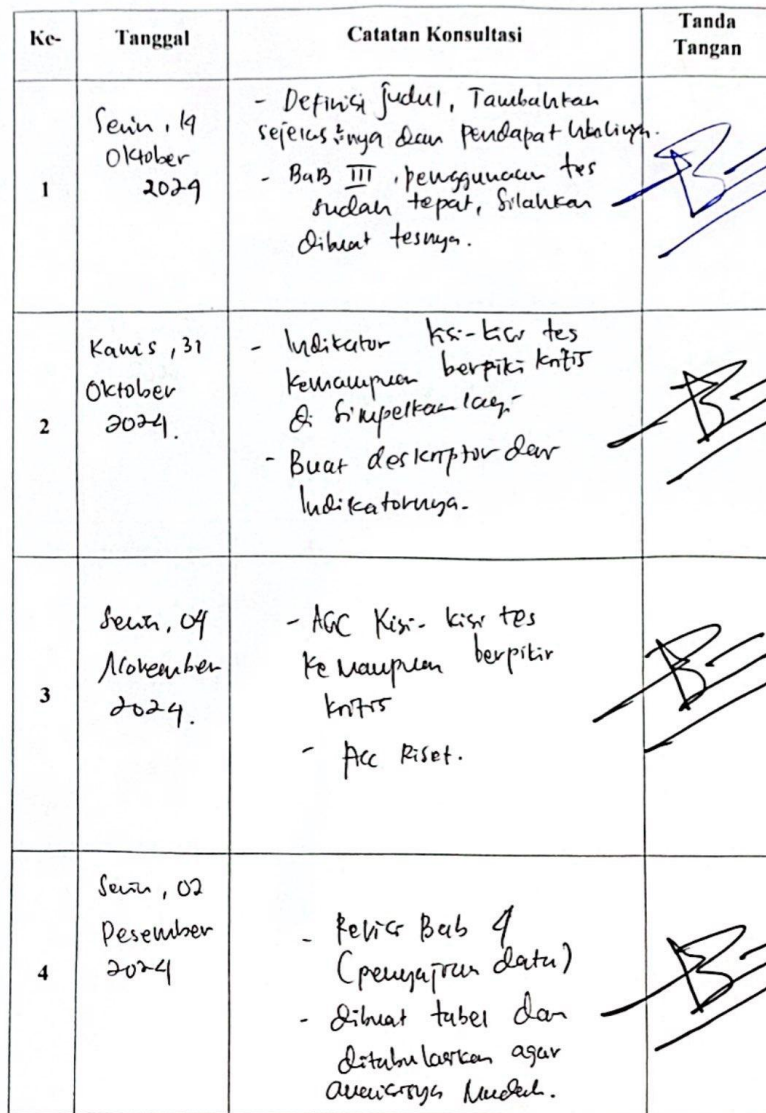 Ke- Tanggal Catatan Konsultasi Tanda Tangan
1
Senin, 14
Oktober
2024
- Definisi judul, Tambahkan
sejelas²nya dan pendapat
- BaB III, penggunaan tes
sudah tepat, Silahkan
dibuat tesnya.
2
Kamis, 31
Oktober
2024.
- Indikator kisi-kisi tes
kemampuan berpikir kritis
di simpelkan lagi
- Buat deskriptor dar
Indikatornya.
3
Senin, 04
November
2024.
- ACC Kisi-kisi tes
kemampuan berpikir
kritis
- Acc Riset.
4
Senin, 02
Desember
2024
- Revisi Bab 4
(penyajian data)
- dibuat tabel dan
ditabulasikan agar
analisisnya Mudah.